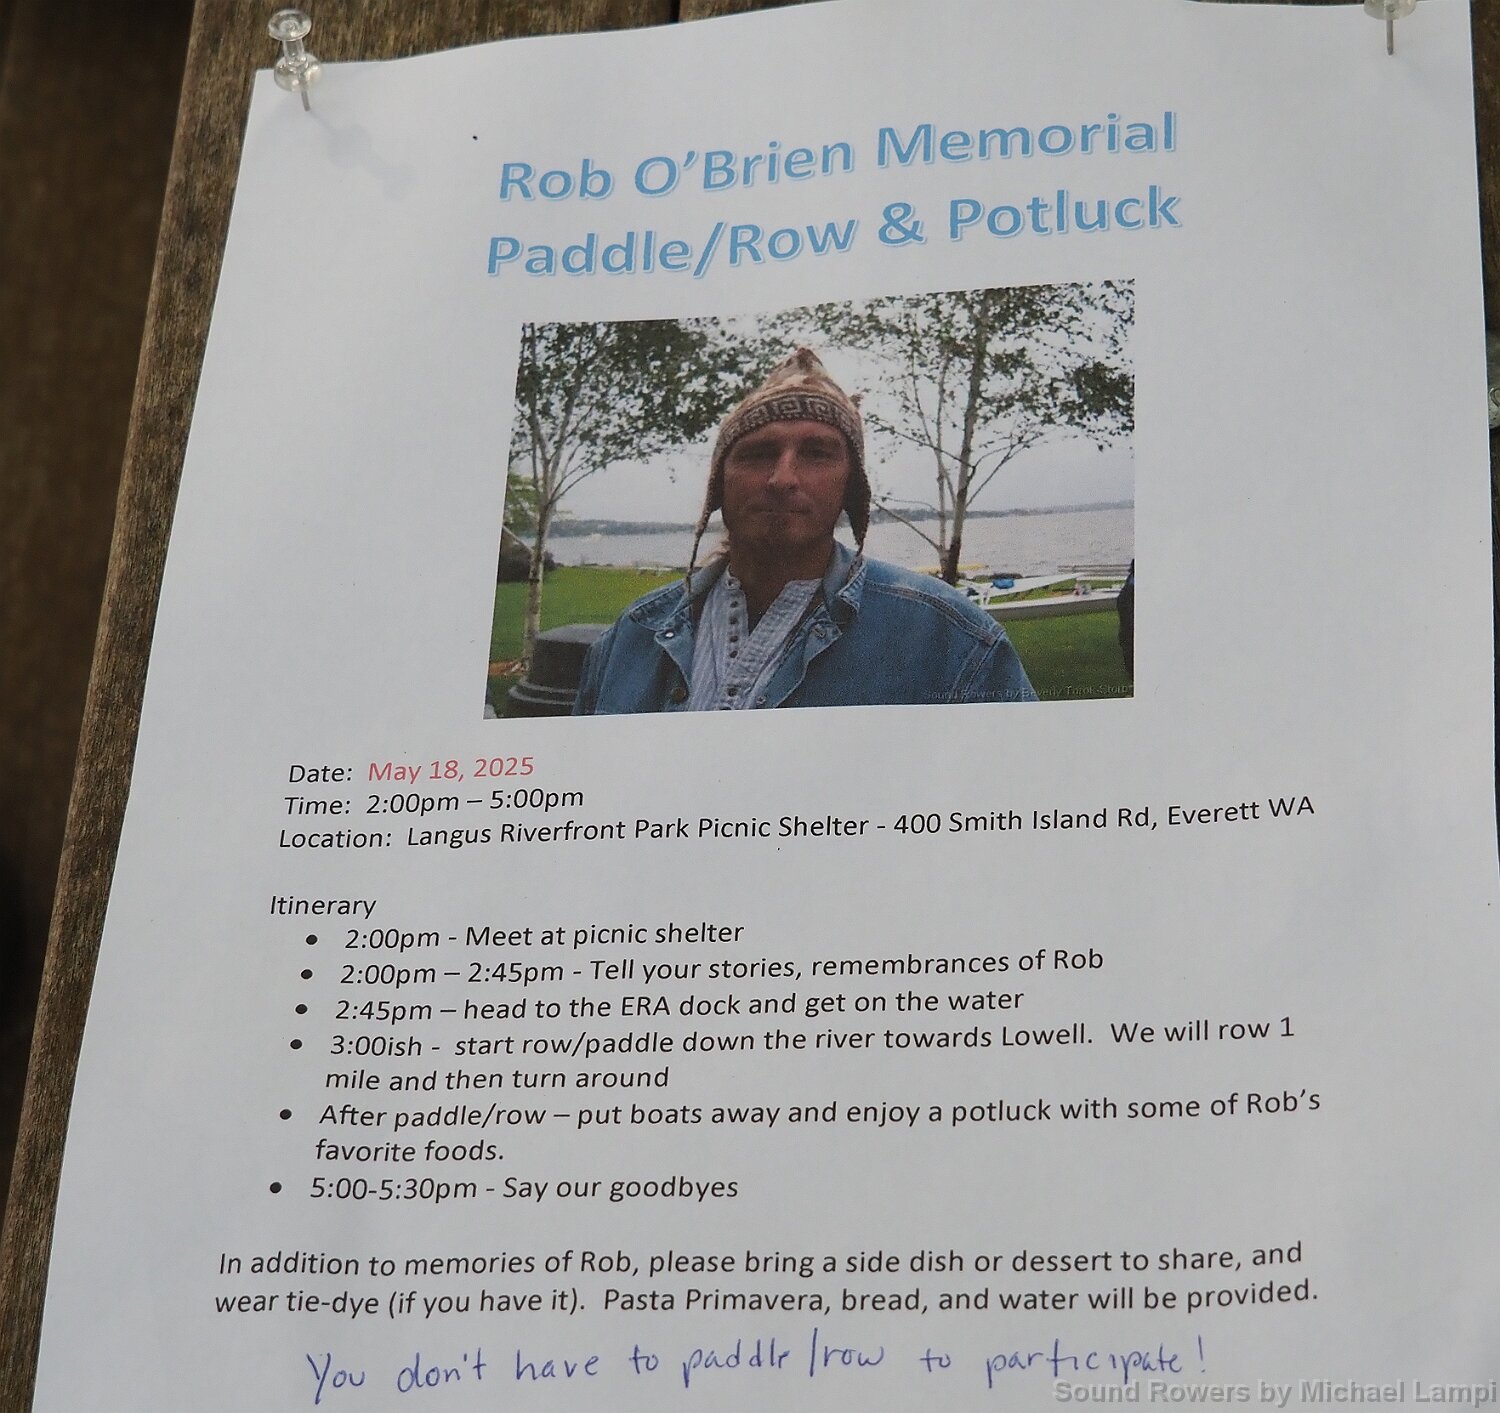 Rob O'Brien Memorial
Paddle/Row & Potluck
Sound Rowers by Beverly
Date: May 18, 2025
Time: 2:00pm – 5:00pm
Location: Langus Riverfront Park Picnic Shelter - 400 Smith Island Rd, Everett WA
Itinerary
• 2:00pm - Meet at picnic shelter
• 2:00pm – 2:45pm - Tell your stories, remembrances of Rob
• 2:45pm – head to the ERA dock and get on the water
• 3:00ish - start row/paddle down the river towards Lowell. We will row 1
mile and then turn around
• After paddle/row – put boats away and enjoy a potluck with some of Rob's
favorite foods.
• 5:00-5:30pm - Say our goodbyes
In addition to memories of Rob, please bring a side dish or dessert to share, and
wear tie-dye (if you have it). Pasta Primavera, bread, and water will be provided.
You don't have to paddle/row to participate!
Sound Rowers by Michael Lampi